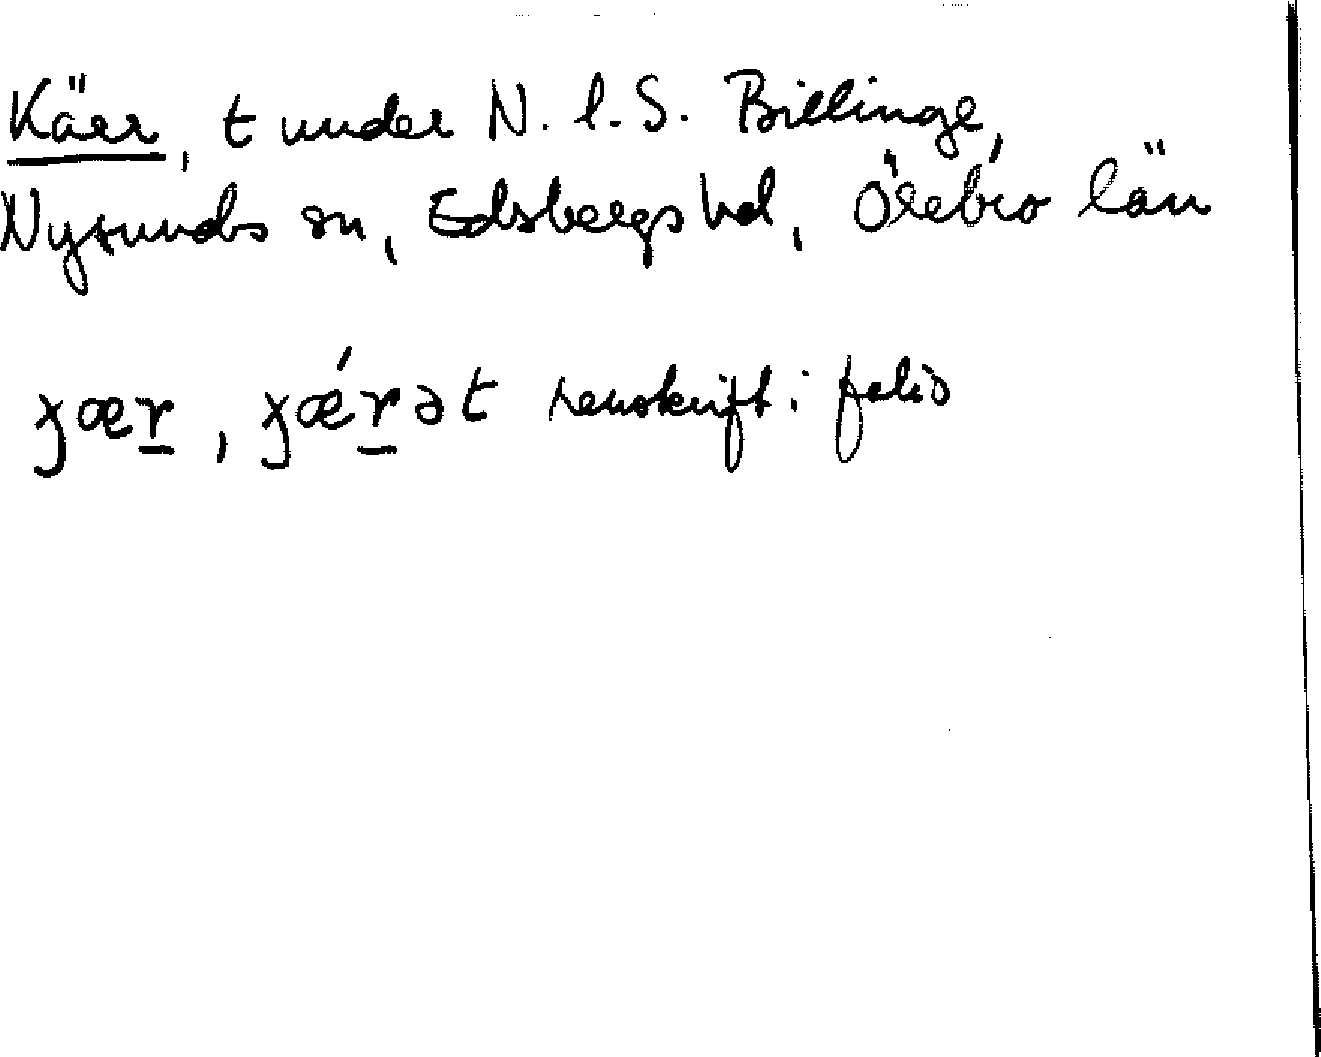 Kärr, t under N. l. S. Billinge,
Nysunds sn, Edsbergs hd, Örebro län
ɟær, ɟǽrət renskrift i folio